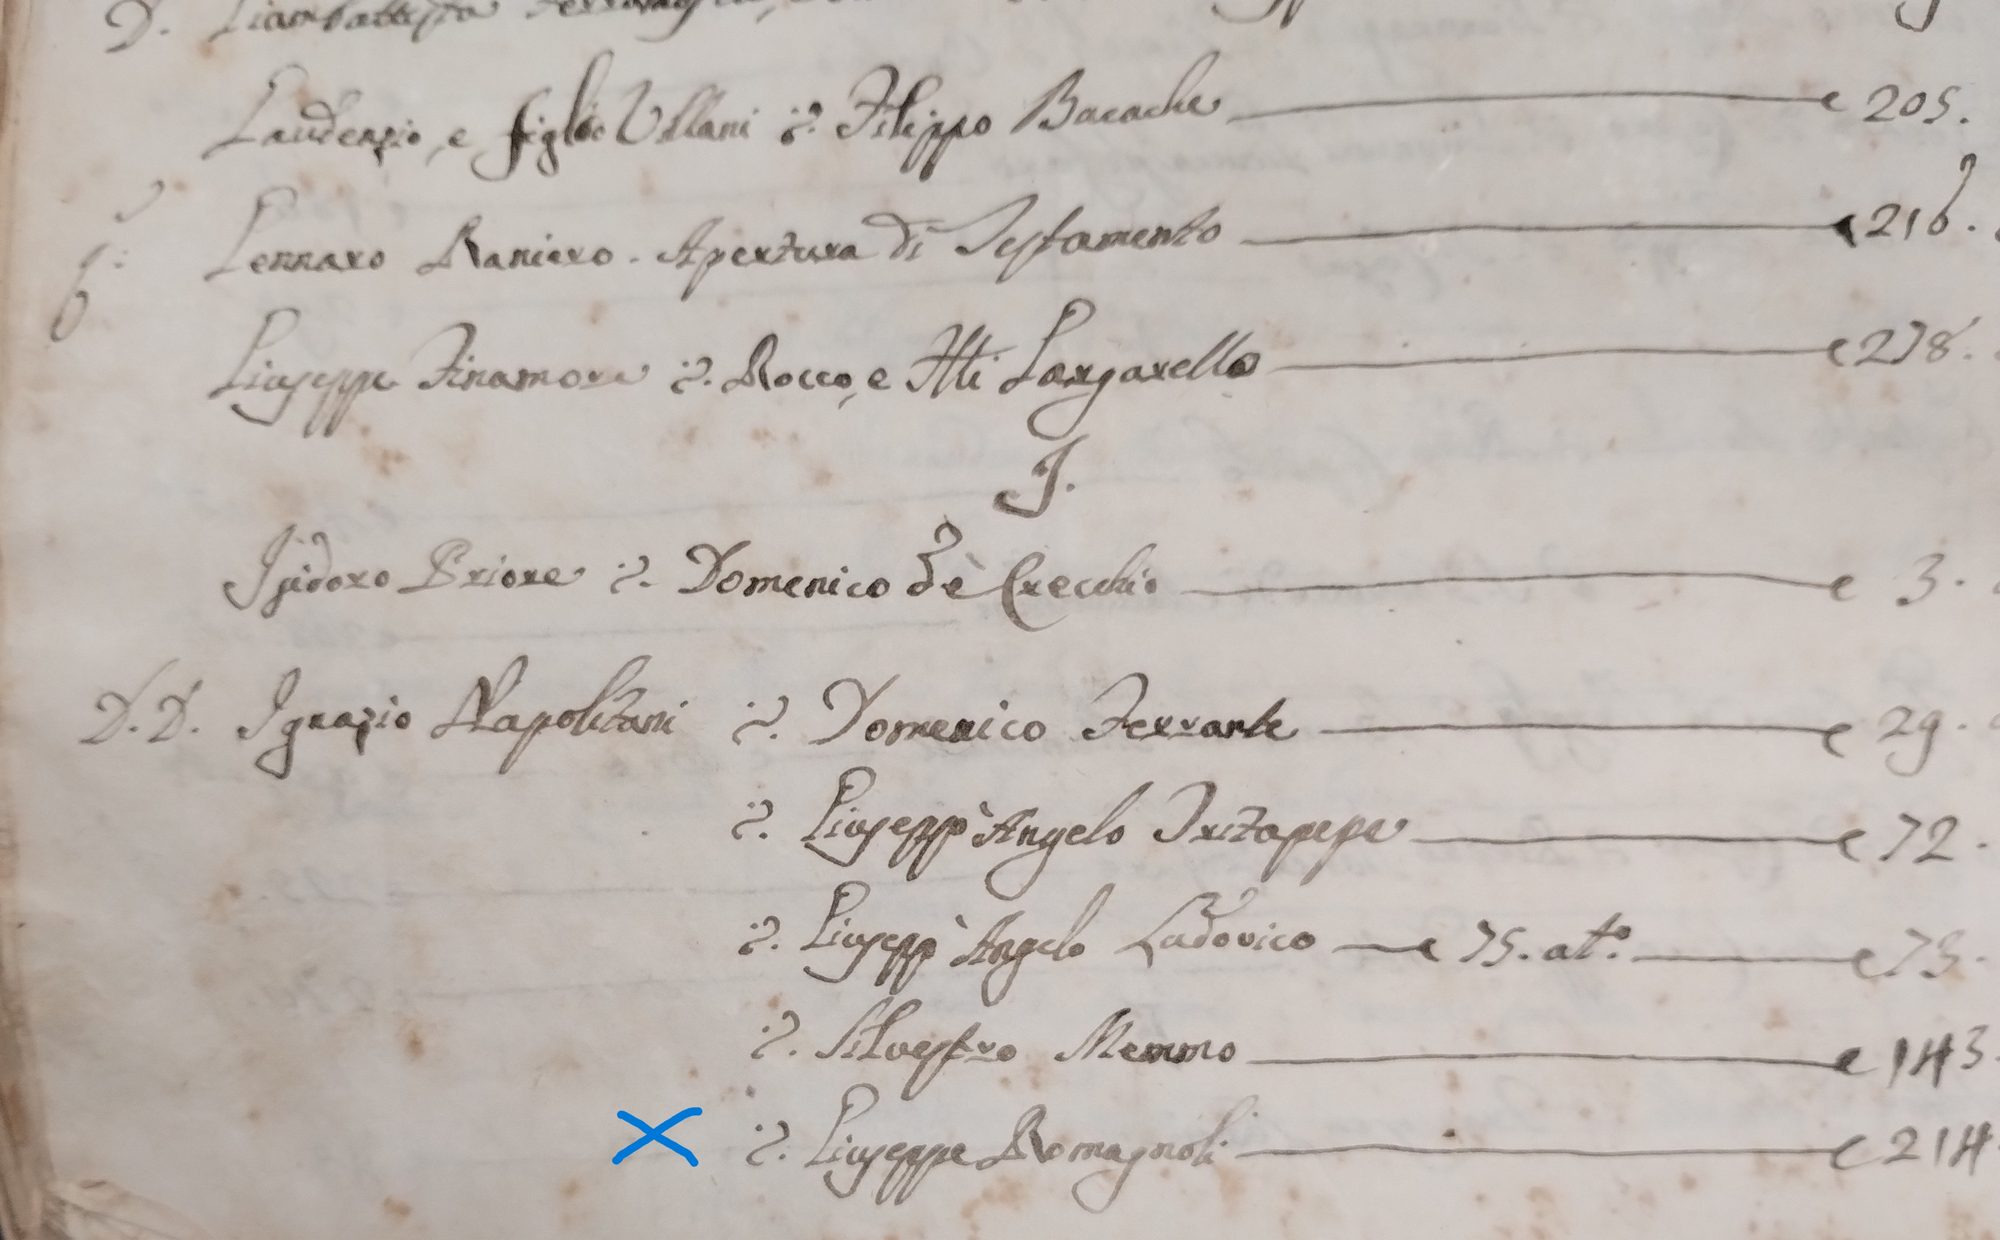 D. Gianbattista
Gaudenzio, e figlio Ullani :?. Filippo Bacache 205.
Gennaro Raniero. Apertura di Testamento 216.
Giuseppe Finamore :?. Rocco, e Atti Gargarella 278.
I.
Isidoro Priore :?. Domenico dè Crecchio 3.
D. D. Ignazio Napolitani :?. Domenico Ferrante 29.
:?. Giusepp' Angelo Tritapepe 72.
:?. Giusepp' Angelo Ludovico 75. at.o 73.
:?. Silvestro Memmo 143
:?. Giuseppe Romagnoli 214